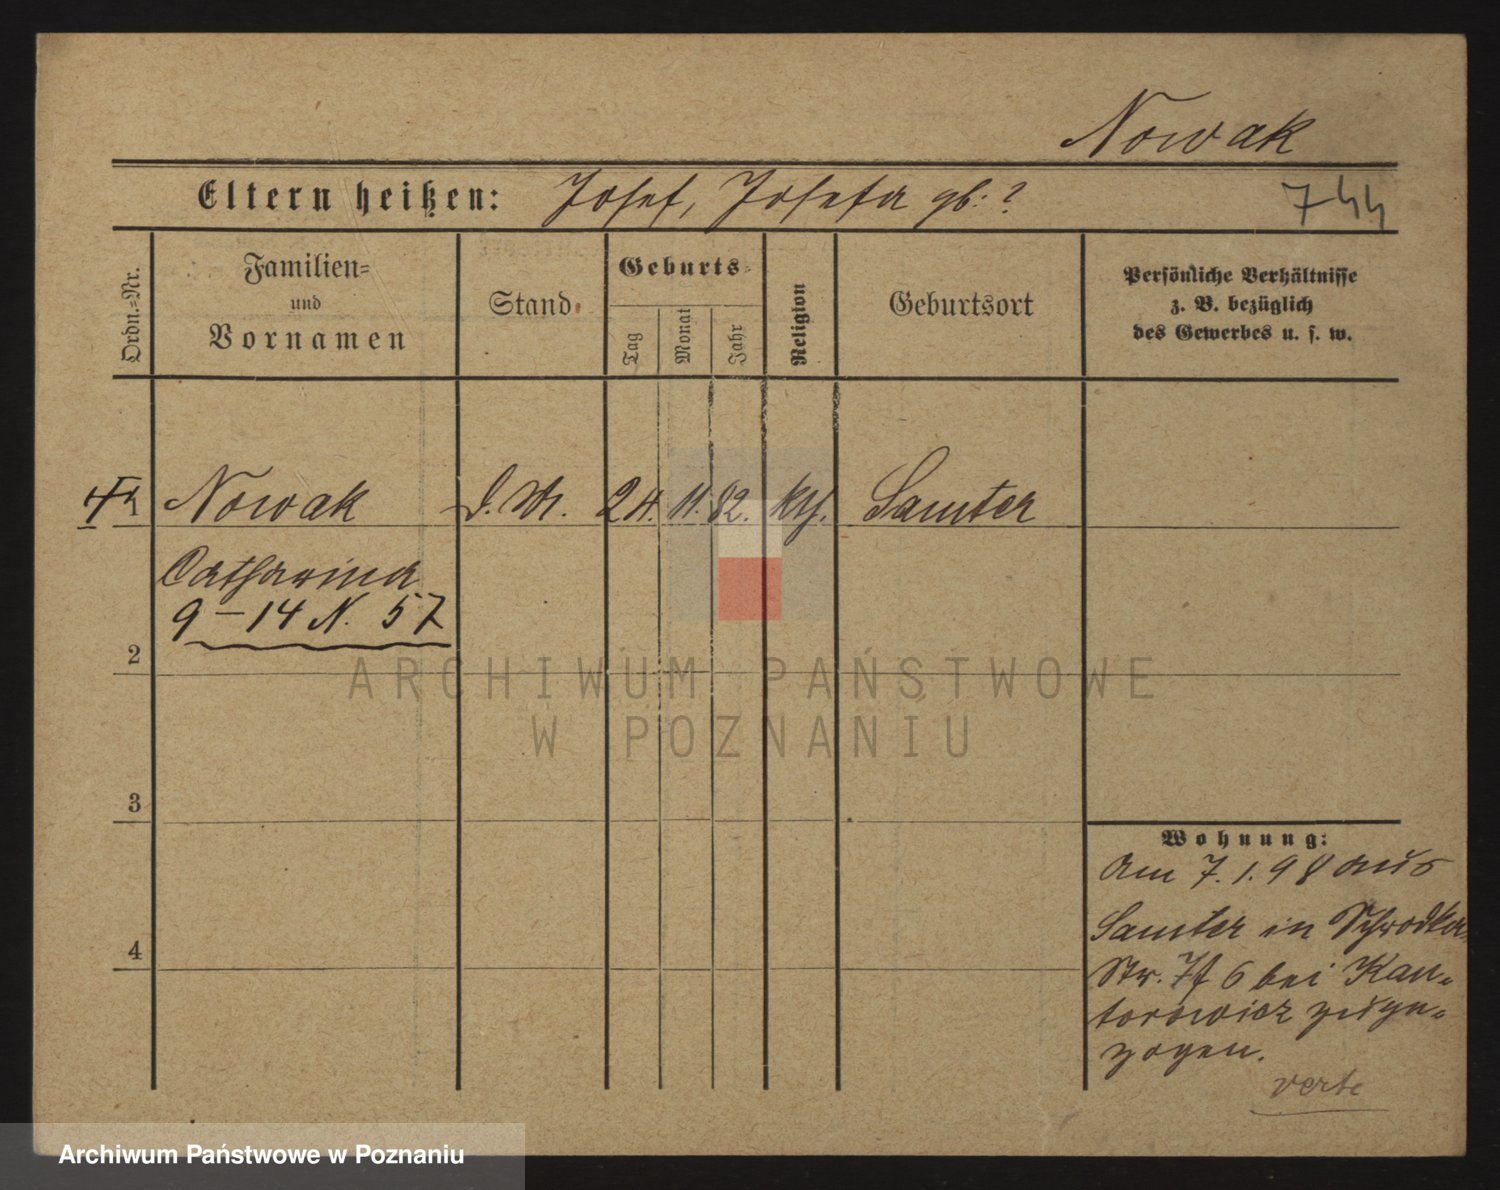 Nowak
Eltern heißen: Josef, Josefa gb: ?
744
Ordn.=Nr.
Familien=
und
Vornamen
Stand
Geburts=
Tag
Monat
Jahr
Religion
Geburtsort
Persönliche Verhältnisse
z. B. bezüglich
des Gewerbes u. s. w.
Nowak
24. 11. 82. kth. Samter
Catharina
9–14 N. 57
2
ARCHIWUM PAŃSTWOWE
W POZNANIU
3
Wohnung:
am 7. 1. 98 aus
Samter in Schrodka
4
Str. 6 bei Kan=
torowicz zuge=
zogen.
verte
Archiwum Państwowe w Poznaniu